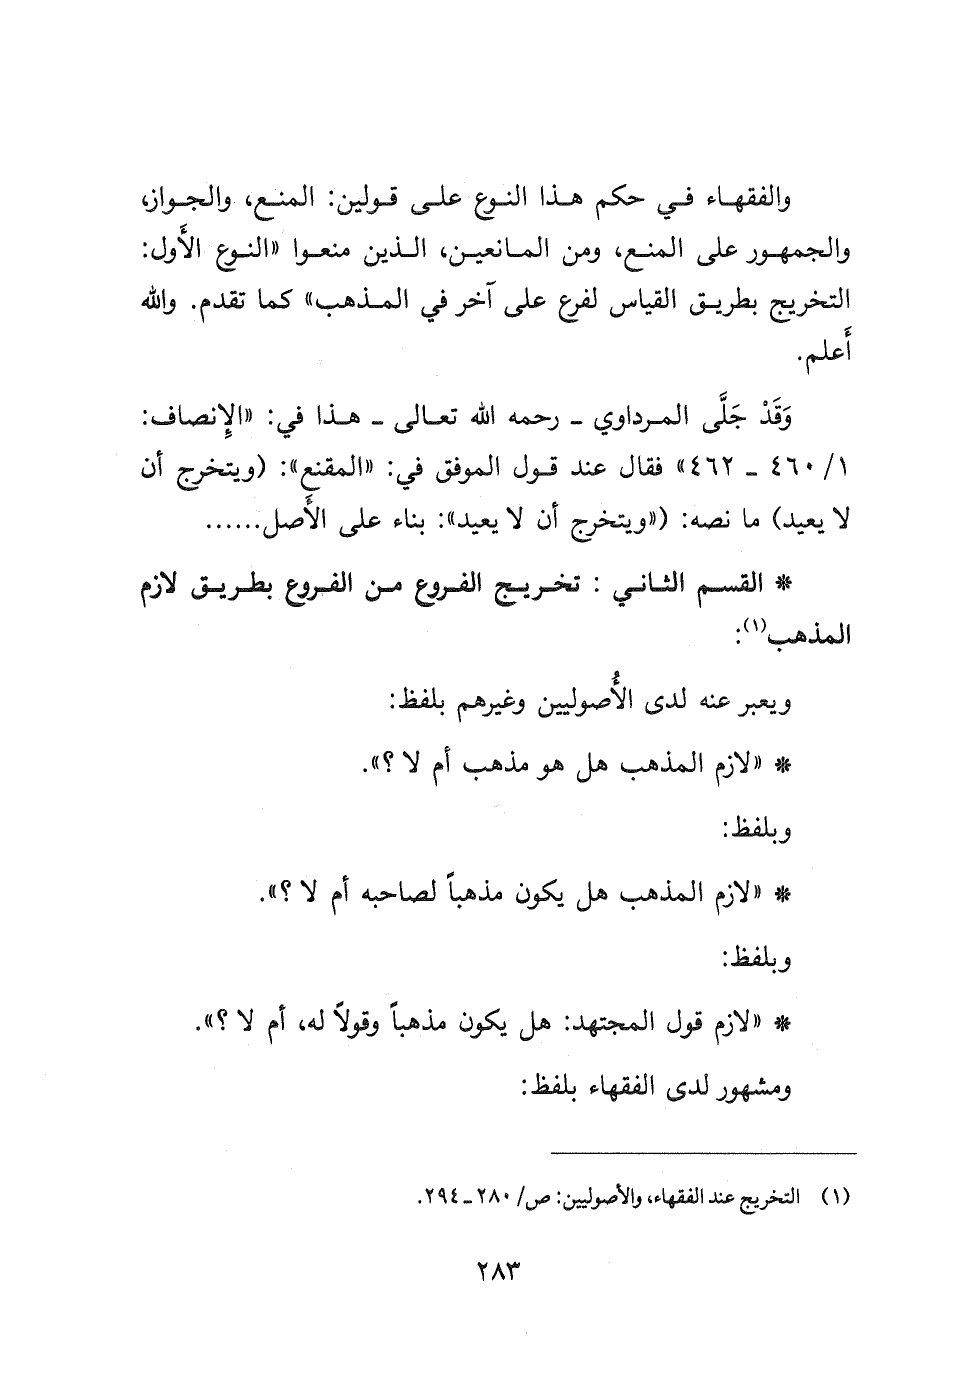 والفقهاء في حكم هذا النوع على قولين: المنع، والجواز،
والجمهور على المنع، ومن المانعين، الذين منعوا «النوع الأَول:
التخريج بطريق القياس لفرع على آخر في المذهب» كما تقدم. والله
أَعلم.
وَقَدْ جَلَّى المرداوي ـ رحمه الله تعالى ـ هذا في: «الإِنصاف:
١/ ٤٦٠ ـ ٤٦٢» فقال عند قول الموفق في: «المقنع»: (ويتخرج أن
لا يعيد) ما نصه: («ويتخرج أن لا يعيد»: بناء على الأَصل......
* القسم الثاني : تخريج الفروع من الفروع بطريق لازم
المذهب(١):
ويعبر عنه لدى الأُصوليين وغيرهم بلفظ:
* «لازم المذهب هل هو مذهب أم لا ؟».
وبلفظ:
* «لازم المذهب هل يكون مذهباً لصاحبه أم لا ؟».
وبلفظ:
* «لازم قول المجتهد: هل يكون مذهباً وقولاً له، أم لا ؟».
ومشهور لدى الفقهاء بلفظ:
(١) التخريج عند الفقهاء، والأصوليين: ص/ ٢٨٠ ـ ٢٩٤.
٢٨٣